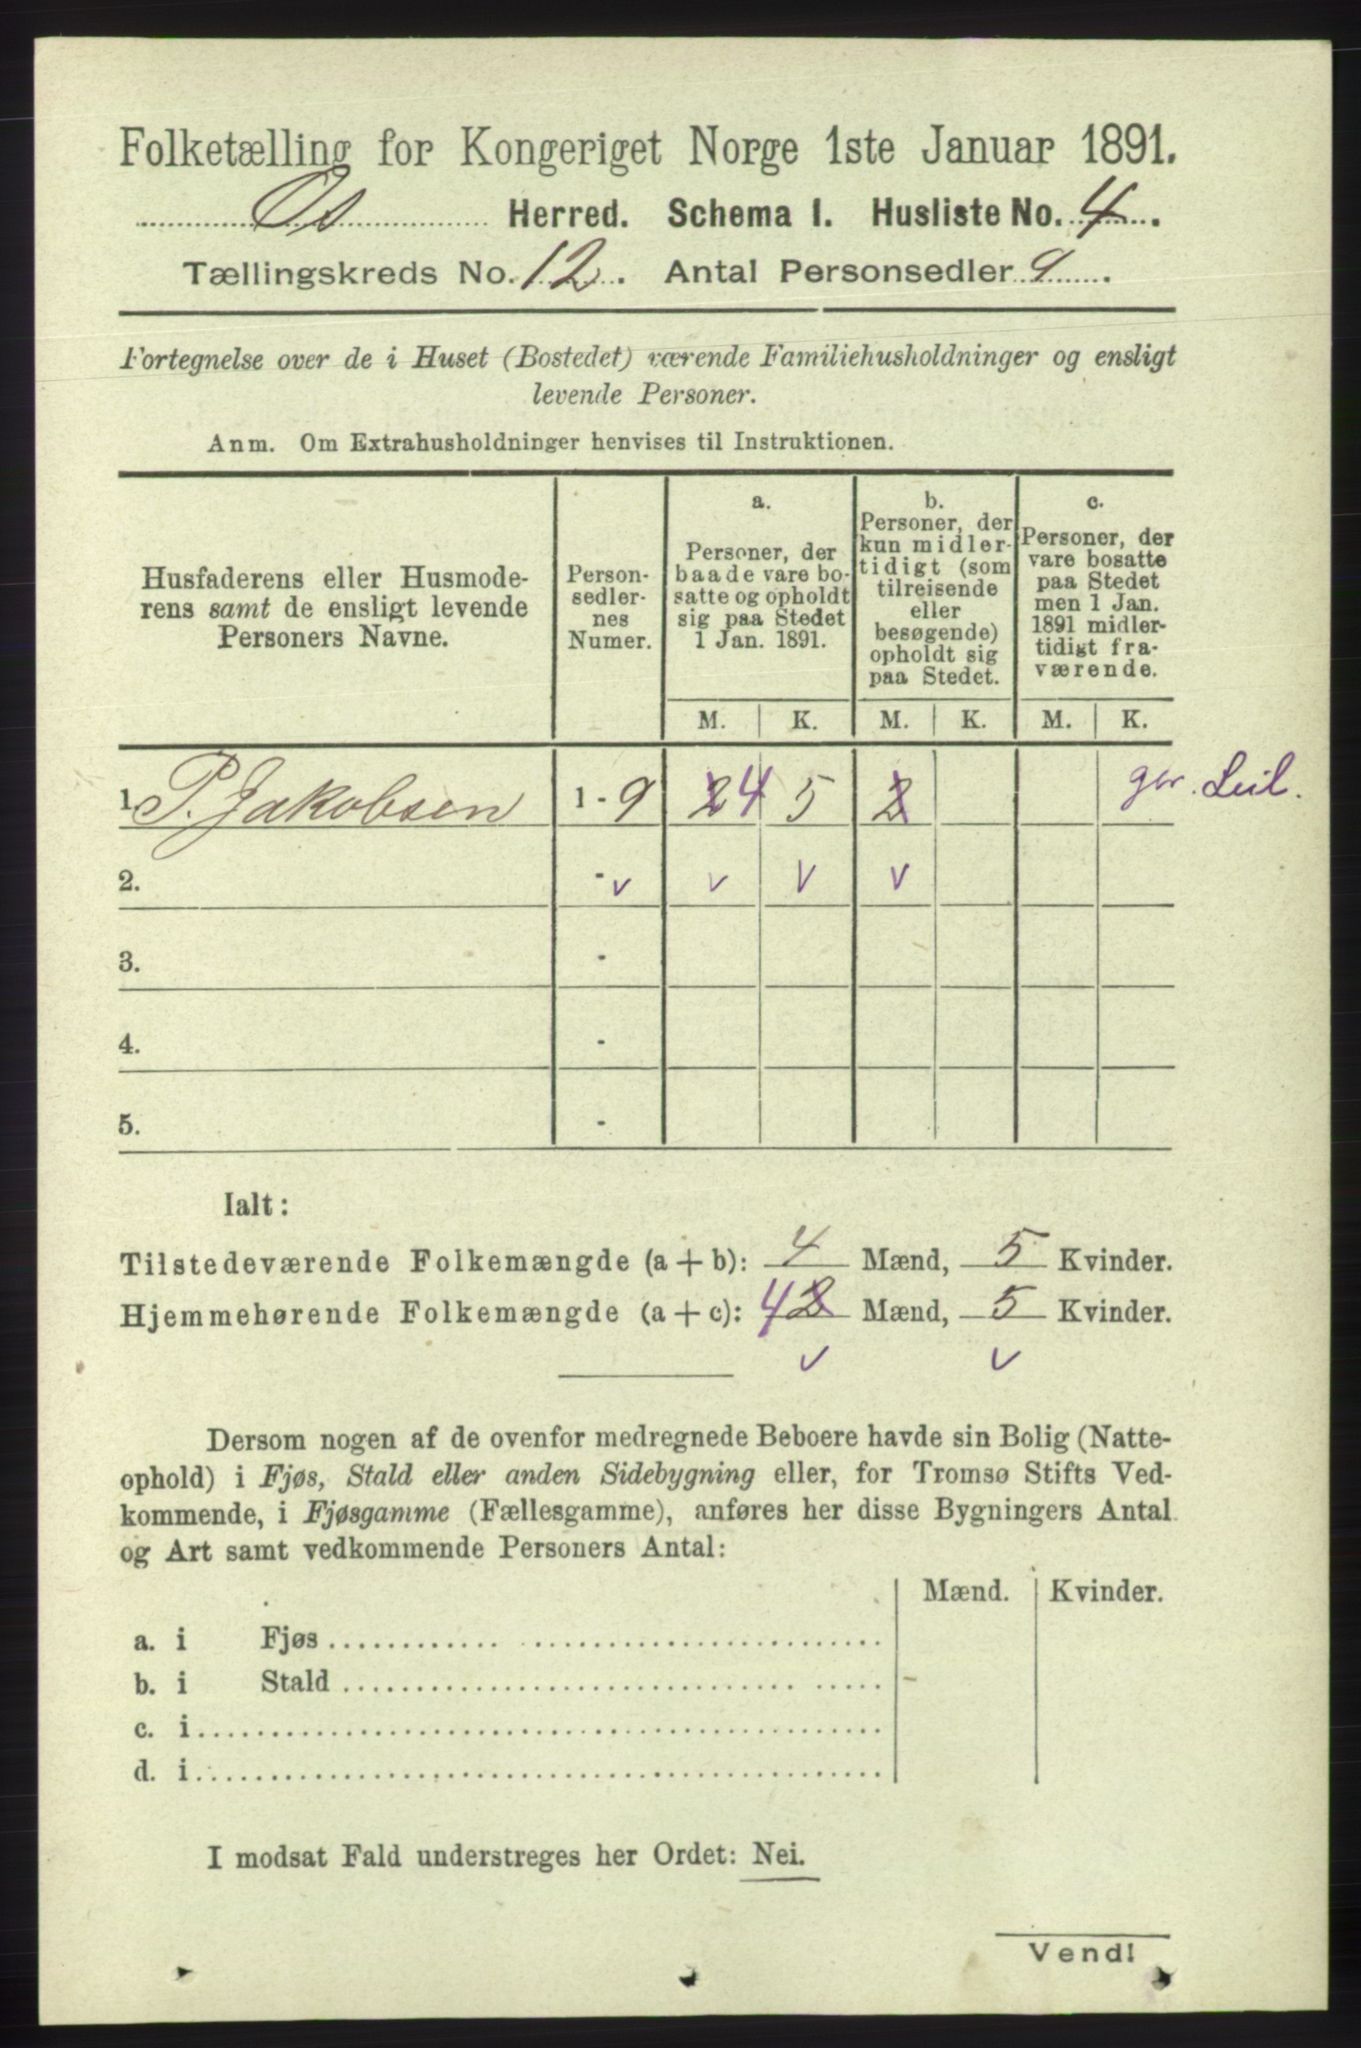 Folketælling for Kongeriget Norge 1ste Januar 1891.
Os Herred. Schema I. Husliste No. 4.
Tællingskreds No. 12. Antal Personsedler 9.
Fortegnelse over de i Huset (Bostedet) værende Familiehusholdninger og ensligt
levende Personer.
Anm. Om Extrahusholdninger henvises til Instruktionen.
Husfaderens eller Husmode-
rens samt de ensligt levende
Personers Navne.
Person-
sedler-
nes
Numer.
a.
Personer, der
baade vare bo-
satte og opholdt
sig paa Stedet
1 Jan. 1891.
b.
Personer, der
kun midler-
tidigt (som
tilreisende
eller
besøgende)
opholdt sig
paa Stedet.
c.
Personer, der
vare bosatte
paa Stedet
men 1 Jan.
1891 midler-
tidigt fra-
værende.
M. K. M. K. M. K.
1. P. Jakobsen 1 - 9 2 4 5 2 Leil.
2. - v v v v
3. -
4. -
5. -
Ialt:
Tilstedeværende Folkemængde (a + b): 4 Mænd, 5 Kvinder.
Hjemmehørende Folkemængde (a + c): 4 2 Mænd, 5 Kvinder.
v v
Dersom nogen af de ovenfor medregnede Beboere havde sin Bolig (Natte-
ophold) i Fjøs, Stald eller anden Sidebygning eller, for Tromsø Stifts Ved-
kommende, i Fjøsgamme (Fællesgamme), anføres her disse Bygningers Antal
og Art samt vedkommende Personers Antal:
Mænd. Kvinder.
a. i Fjøs
b. i Stald
c. i
d. i
I modsat Fald understreges her Ordet: Nei.
Vend!